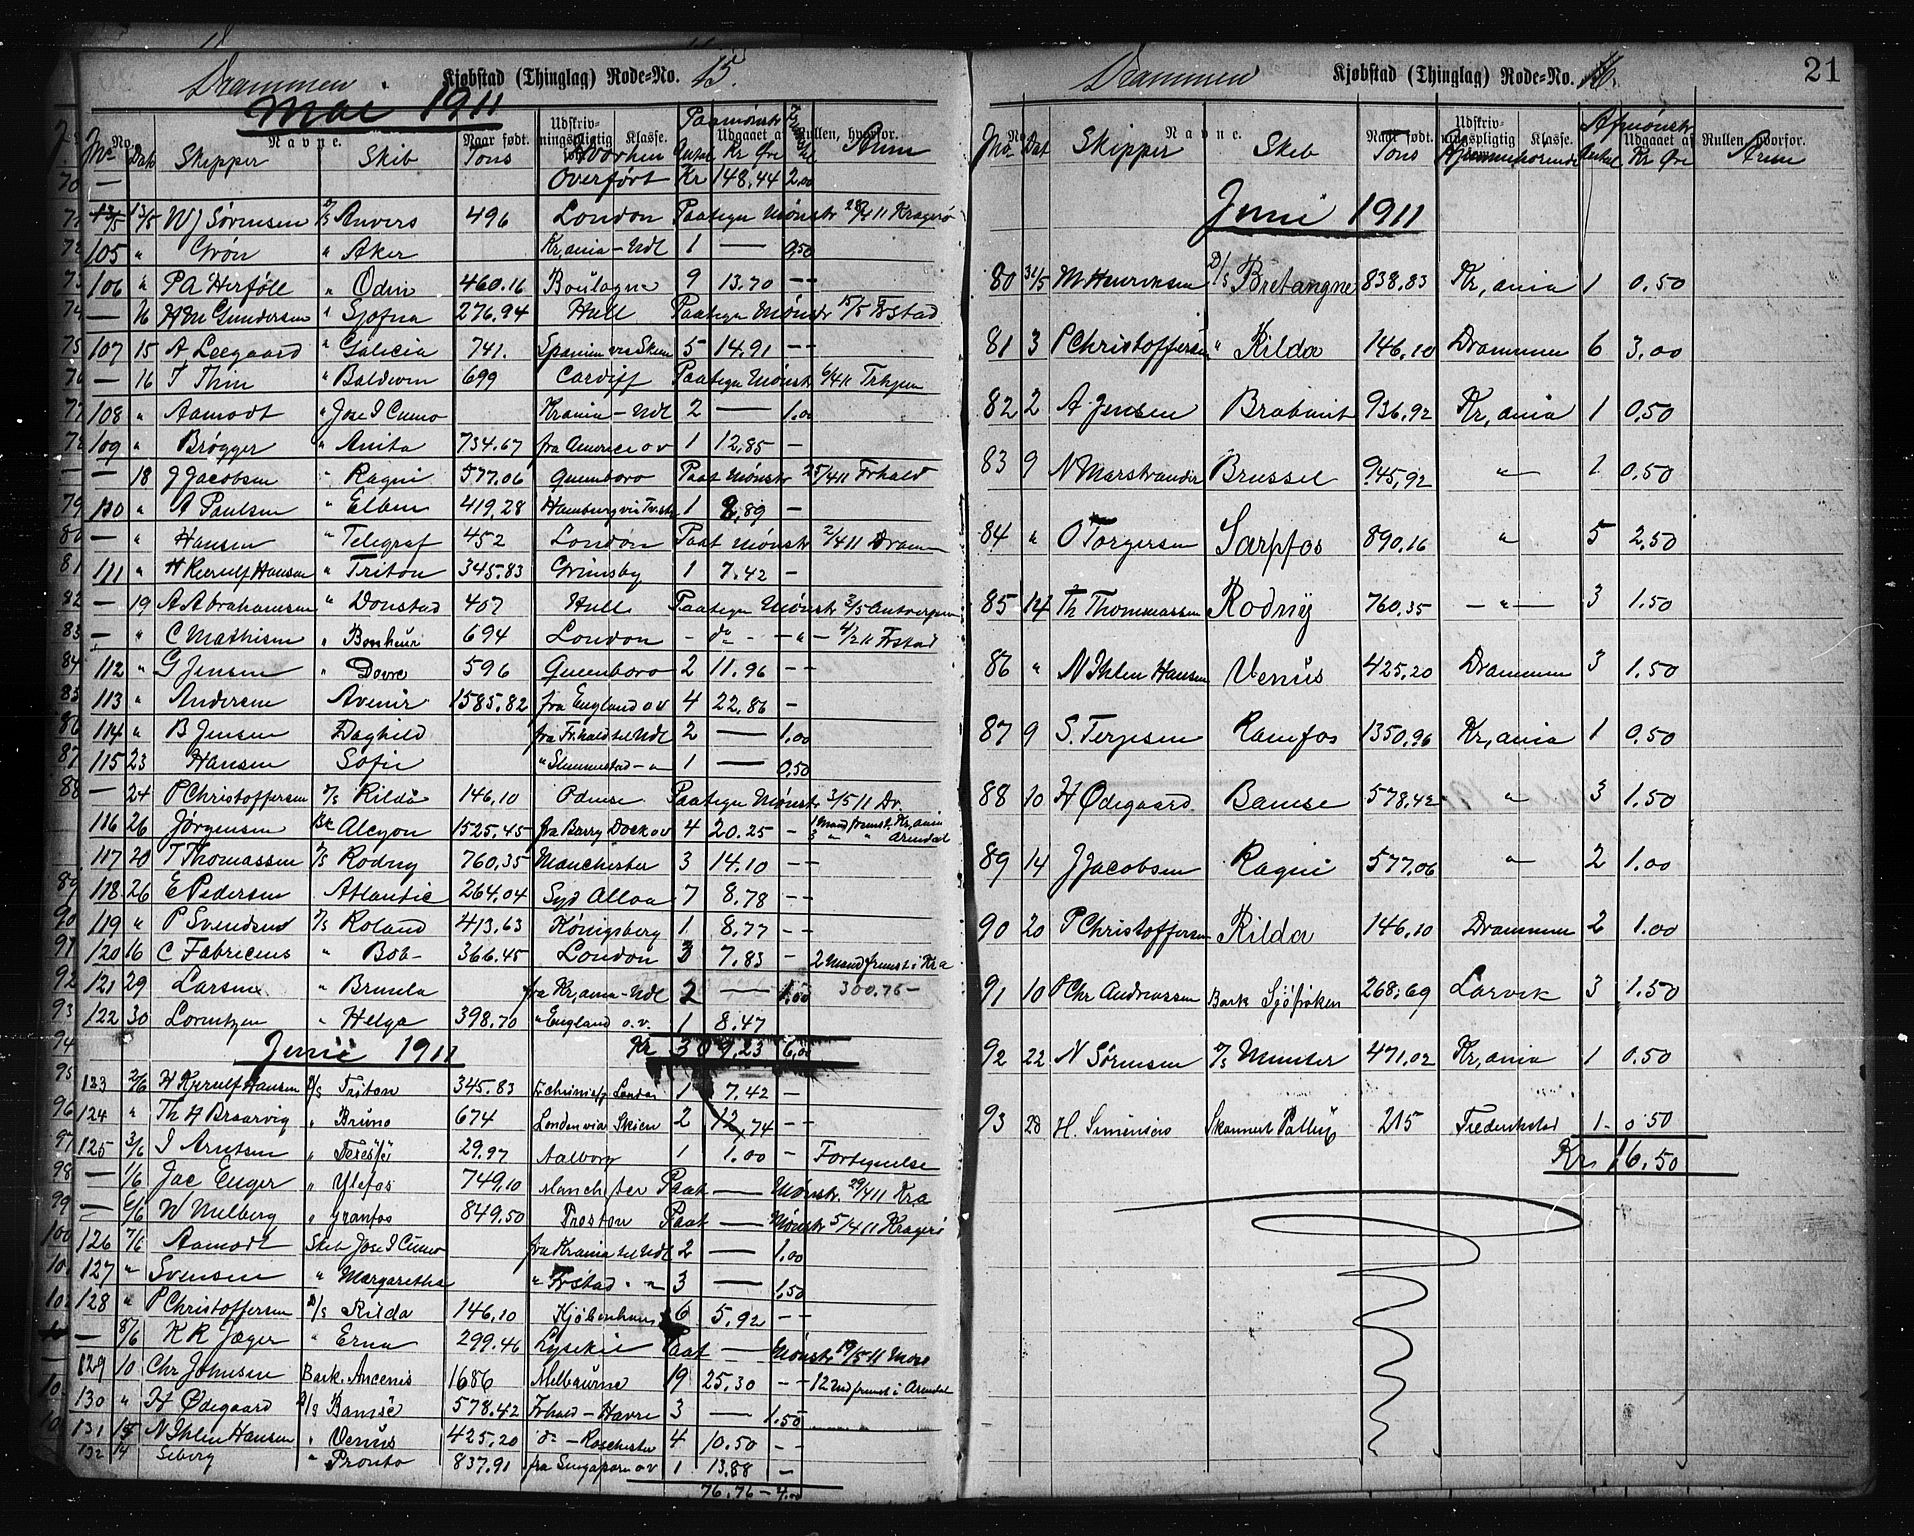 Drammen Kjøbstad (Thinglag) Rode-No. 15.
Mai 1911
No. Navne. Naar født. Udskrivningspligtig Klasse. Udgaaet af Rullen, hvorfor.
No Dato Skipper Skib Tons Hvorhen Paamønstr Antal Kr Øre Anm
— Overført Kr 148.44 2.00
13/5 13/5 W J Sørensen D/s Anvers 496 London Paategn Mønstr 28/4 11 Kragerø
105 " Grøn " Aker Kr,ania-Udl 1 — 0,50
106 " P A Herföll " Odin 460.16 Boulogne 9 13.70 --
— 16 H M Gundersen " Sjofna 276.94 Hull Paategn Mønstr 15/5 Frstad
107 15 A Leegaard " Galicia 741. Spanien via Skien 5 14.91 --
— 16 T Thin " Baldwin 699 Cardiff Paategn Mønstr 6/4 11 Trhjem
108 " Aamodt " Jose I Cumo Krania-Udl 2 — 1.00
109 " Brøgger " Anita 734.67 fra America o v 1 12.85 —
— 18 J Jacobsen " Ragni 577.06 Quenboro Paat Mønstr 25/4 11 Frhald
110 " A Paulsen " Elben 419.28 Hamburg via Tv.str 1 8.89 —
— " Hansen " Telegraf 452 London Paat Mønstr 2/4 11 Dramm
111 " H Kjerulf Hansen " Triton 345.83 Grimsby 1 7.42 —
— 19 A Abrahamsen " Donstad 407 Hull Paategn Mønstr 3/5 Antwerpen
— " C Mathisen " Bonheur 694 London - do - - " - 4/2 11 Frstad
112 " G Jensen " Dovre 596 Quenboro 2 11.96 --
113 " Andersen Avenir 1585.82 fra England o v 4 22.86 —
114 " B Jensen Daghild fra Fr.hald til Udl 2 — 1.00
115 23 Hansen Sofie " Slemmestad - " 1 — 0,50
— 24 P Christoffersen D/s Kilda 146.10 Odense Paategn Mønstr 3/5 11 Dr.
116 26 Jørgensen Bk Alcyon 1525.45 fra Barry Dock o v 4 20.25 - 1 Mand fremst. Kr,ania
3 " " Arendal
117 20 T Thomassen D/s Rodny 760.35 Manchester 3 14.10 --
118 26 E Pedersen Atlantic 264.04 Syd Alloa 7 8.78 --
119 " P Svendsen D/s Roland 413.63 Königsberg 1 8.77 --
120 16 C Fabricius " Boa 366.45 London 3 7.83 - 2 Mand fremst i Kr a
121 29 Larsen " Brunla fra Kr,ania-Udl 2 — 1.00 300.76-
122 30 Lorentzen " Helga 398.70 " England o.v. 1 8.47
Kr 309.23 6,00
Juni 1911
123 2/6 H Kjerulf Hansen D/s Triton 345.83 London 1 7.42 —
124 " Th H Braarvig " Bruno 674 London via Skien 2 12,74 —
125 3/6 I Arntsen " 29.97 Aalborg 1 1.00 - Fortegnelse
— 1/6 Jac Enger " Ulefos 749.10 Manchester Paat — Mønstr. 29/4 11 Kra
— 6/6 W Melberg " Granfos 849.50 Paat — Mønstr 5/4 11 Kragerø
126 7/6 Aamodt Skib Jose I Cumo fra Krania til Udl 2 — 1.00
127 " Svensen " Margaretha " Frstad - " 3 — 1.50
128 " P Christoffersen D/s Kilda 146,10 Kjøbenhavn 6 5.92 --
— 8/6 K R Jæger " Erna 299.46 Lysekil Paat — Mønstr 19/5 11 Moss
129 10 Chr Johnsen Bark. Ancenis 1686 Melbourne 19 25.30 -- 12 Mnd fremst i Arendal
130 " H Ødegaard D/s Bamse 578.42 Frhald - Havre 3 — 1.50
131 15 N Ihlen Hansen " Venus 425.20 do - Rochester 4 10.50 --
132 14 Seberg " Pronto 837.91 fra Singapore o v 1 13.88 —
76.76 - 4.00
Drammen Kjøbstad (Thinglag) Rode-No. 16. 21
No. Navne. Naar født. Udskrivningspligtig Klasse. Udgaaet af Rullen, hvorfor.
No Dat Skipper Skib Tons Hjemmehørende Afmønstr Antal Kr Øre Anm
Juni 1911
80 31/5 M Henriksen D/s Bretangne 838.83 Kr,ania 1 0.50
81 3 P Christoffersen " Kilda 146.10 Drammen 6 3.00
82 2 A Jensen Brabant 936.92 Kr,ania 1 0.50
83 9 N Marstrander Brussel 945,92 " 1 0.50
84 " O Torgersen Sarpfos 890.16 " 5 2.50
85 14 Th Thommassen Rodny 760.35 - " - 3 1.50
86 " N Ihlen Hansen Venus 425.20 Drammen 3 1.50
87 9 S. Terjesen Ranfos 1350,96 Kr,ania 1 0.50
88 10 H Ødegaard Bamse 578,42 " 3 1.50
89 14 J Jacobsen Ragni 577.06 " 2 1.00
90 20 P Christoffersen Kilda 146.10 Drammen 2 1.00
91 10 O Chr Andreassen Bark Sjöfröken 268.69 Larvik 3 1.50
92 22 N Sørensen D/s Munster 471.02 Kr,ania 1 0.50
93 28 H. Simonsen Skonnert Pallux 215 Frederikstad 1 0 50
Kr. 16.50